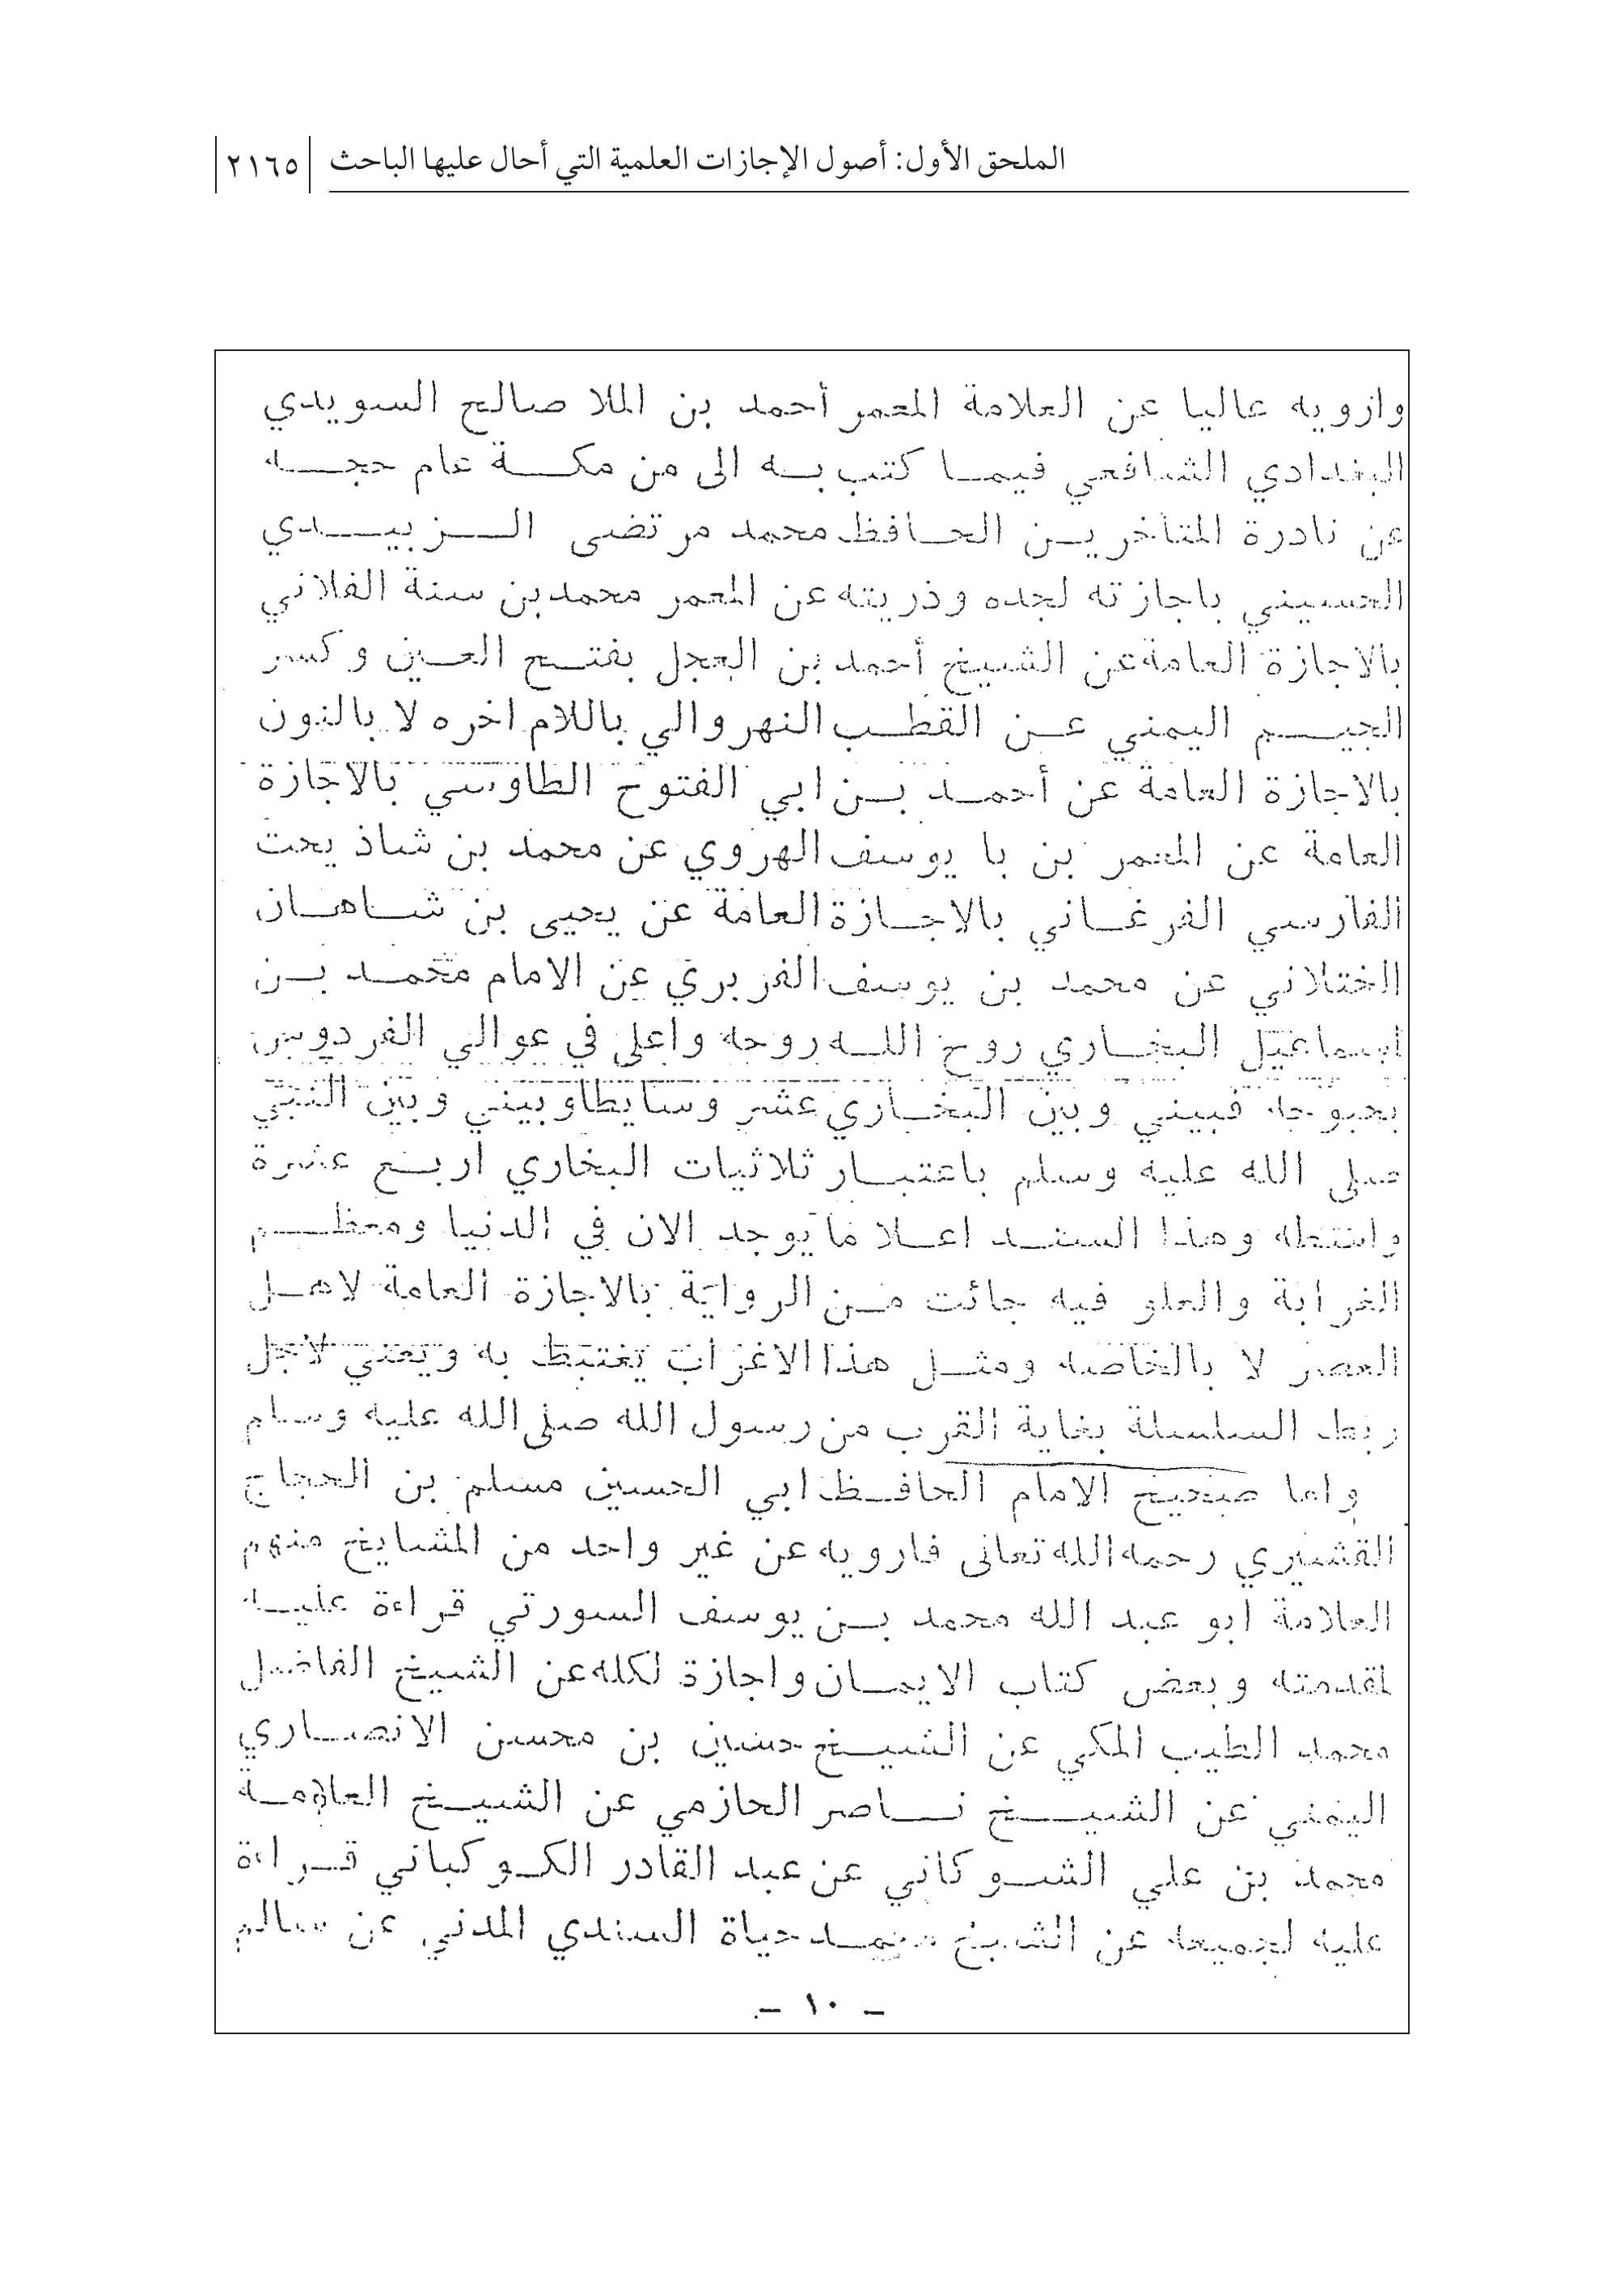 الملحق الأول: أصول الإجازات العلمية التي أحال عليها الباحث ٢١٦٥
وازويه عاليا عن العلامة المعمر أحمد بن الملا صالح السويدي
البغدادي الشافعي فيما كتب به الى من مكة عام حجه
عن نادرة المتأخرين الحافظ محمد مرتضى الزبيدي
الحسيني باجازته لجده وذريته عن المعمر محمد بن سنة الفلاني
بالاجازة العامة عن الشيخ أحمد بن العجل بفتح العين وكسر
الجيم اليمني عن القطب النهروالي باللام اخره لا بالنون
بالاجازة العامة عن أحمد بن ابي الفتوح الطاوسي بالاجازة
العامة عن المعمر بن با يوسف الهروي عن محمد بن شاذ يحت
الفارسي الفرغاني بالاجازة العامة عن يحيى بن شاهان
الختلاني عن محمد بن يوسف الفربري عن الامام محمد بن
اسماعيل البخاري روح الله روحه واعلى في عوالي الفردوس
بحبوحه فبيني وبين البخاري عشر وسايطا وبيني وبين النبي
صلى الله عليه وسلم باعتبار ثلاثيات البخاري اربع عشرة
واسطه وهذا السند اعلا ما يوجد الان في الدنيا ومعظم
الغرابة والعلو فيه جائت من الرواية بالاجازة العامة لاهل
العصر لا بالخاصه ومثل هذا الاغراب يغتبط به ويعني لاجل
ربط السلسلة بغاية القرب من رسول الله صلى الله عليه وسلم
واما صحيح الامام الحافظ ابي الحسين مسلم بن الحجاج
القشيري رحمه الله تعالى فارويه عن غير واحد من المشايخ منهم
العلامة ابو عبد الله محمد بن يوسف السورتي قراءة عليه
لمقدمته وبعض كتاب الايمان واجازة لكله عن الشيخ الفاضل
محمد الطيب المكي عن الشيخ حسين بن محسن الانصاري
اليمني عن الشيخ ناصر الحازمي عن الشيخ العلامة
محمد بن علي الشوكاني عن عبد القادر الكوكباني قراءة
عليه لجميعه عن الشيخ محمد حياة السندي المدني عن سالم
- ١٠ -